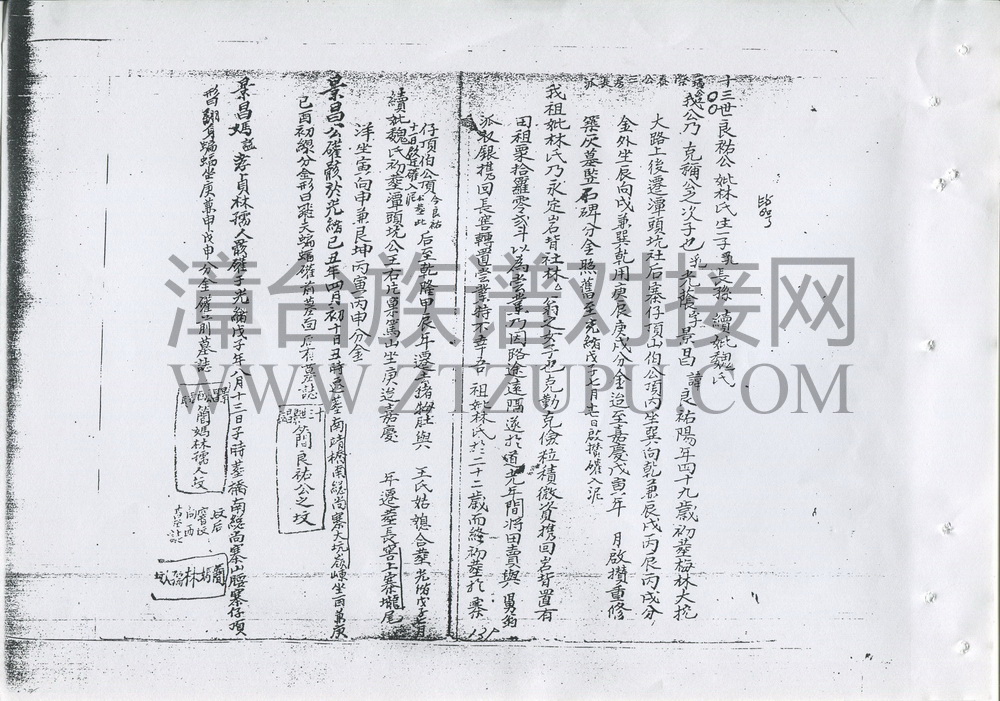 十三世良祐公妣林氏生一子長孫續妣魏氏
我公乃克稱公之次子也乳光諱字景昌諱良祐陽年四十九歲初塟梅林大坑
大路上後遷潭頭坑社后寨仔頂山伯公頂內坐巽向乾兼辰戌丙辰丙戌分
金外坐辰向戌兼巽乾用庚辰庚戌分金迨至嘉慶戊寅年 月啟攢重修
築灰墓竪石碑分金照舊至光緒戊子七月廿七日啟攢確入泥
我祖妣林氏乃永定岩背社林公翁之女子也克勤克儉粒積微資携回岩背置有
田祖粟拾羅零弍斗以為嘗業乃因路途遠隔遂於道光年間將田賣與
派取銀携回長窖轉置嘗業特不幸吾祖妣林氏於二十二歲而終初塟於寨
仔頂伯公頂 后至乾隆甲辰年遷去猪牳肚與 王氏姑媳合塟光緒戊子七月
續妣魏氏初塟潭頭坑公王右片粟篤山坐庚迨嘉慶 年遷塟長窖上寨壠尾
洋坐寅向申兼艮坤丙寅丙申分金
景昌公確骸於光緒己丑年四月初十日丑時遷塟南靖橋南総尚寨大坑崁崠坐酉兼庚
己酉初線分金形曰飛天蝙蝠確前墓面后有墓誌
簡良祐公之坟
景昌媽謚孝貞林孺人骸確于光緒戊子年八月十三日子時塟橋南総尚寨山腰寨仔頂
形翻身蝙蝠坐庚兼申戊申分金確前墓誌
簡媽林孺人坟
坟后
簡媽林孺坟
漳台族谱对接网
WWW.ZTZUPU.COM